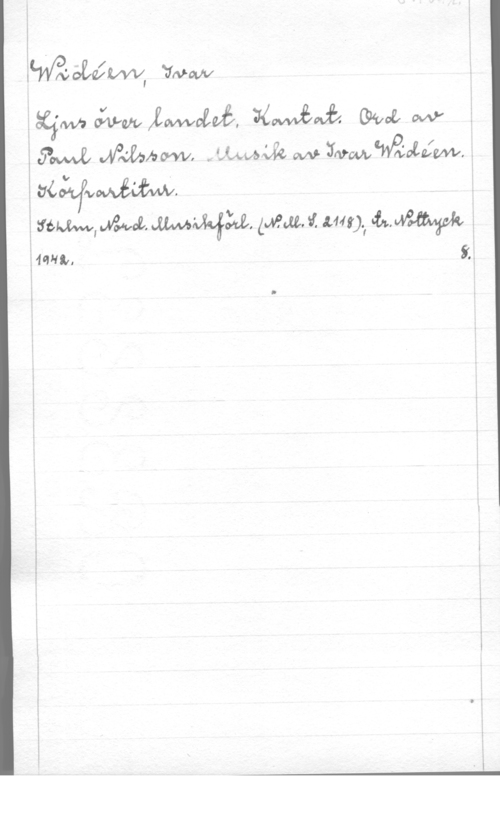 Widéen, Ivar
Ljus över landet. Kantat. Ord av
Paul Nilsson. Musik av Ivar Widéen.
Körpartitur.
Sthlm, Nord. Musikförl. (N.M.S. 2118); tr. Nottryck
1942. 8.